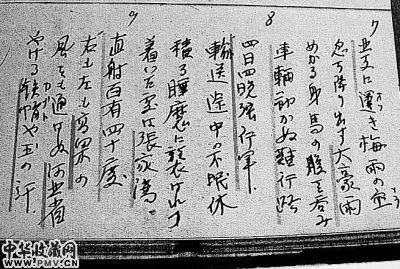 7
き梅雨の空
忽ち降り出す大豪雨
ぬかる身馬の腹を呑み
車輪動かぬ難行路
8
四日四晩強行軍
輸送途中の不眠休
積る睡魔に襲はれつ
着いた は張家湾
9
直射百有四十度
右も左も高粱の
風をも通さぬ河北省
やける鉄帽や玉の汗
中华收藏网
WWW.PMV.CN